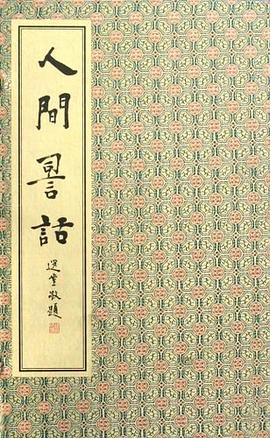 人間詞話
選堂敬題